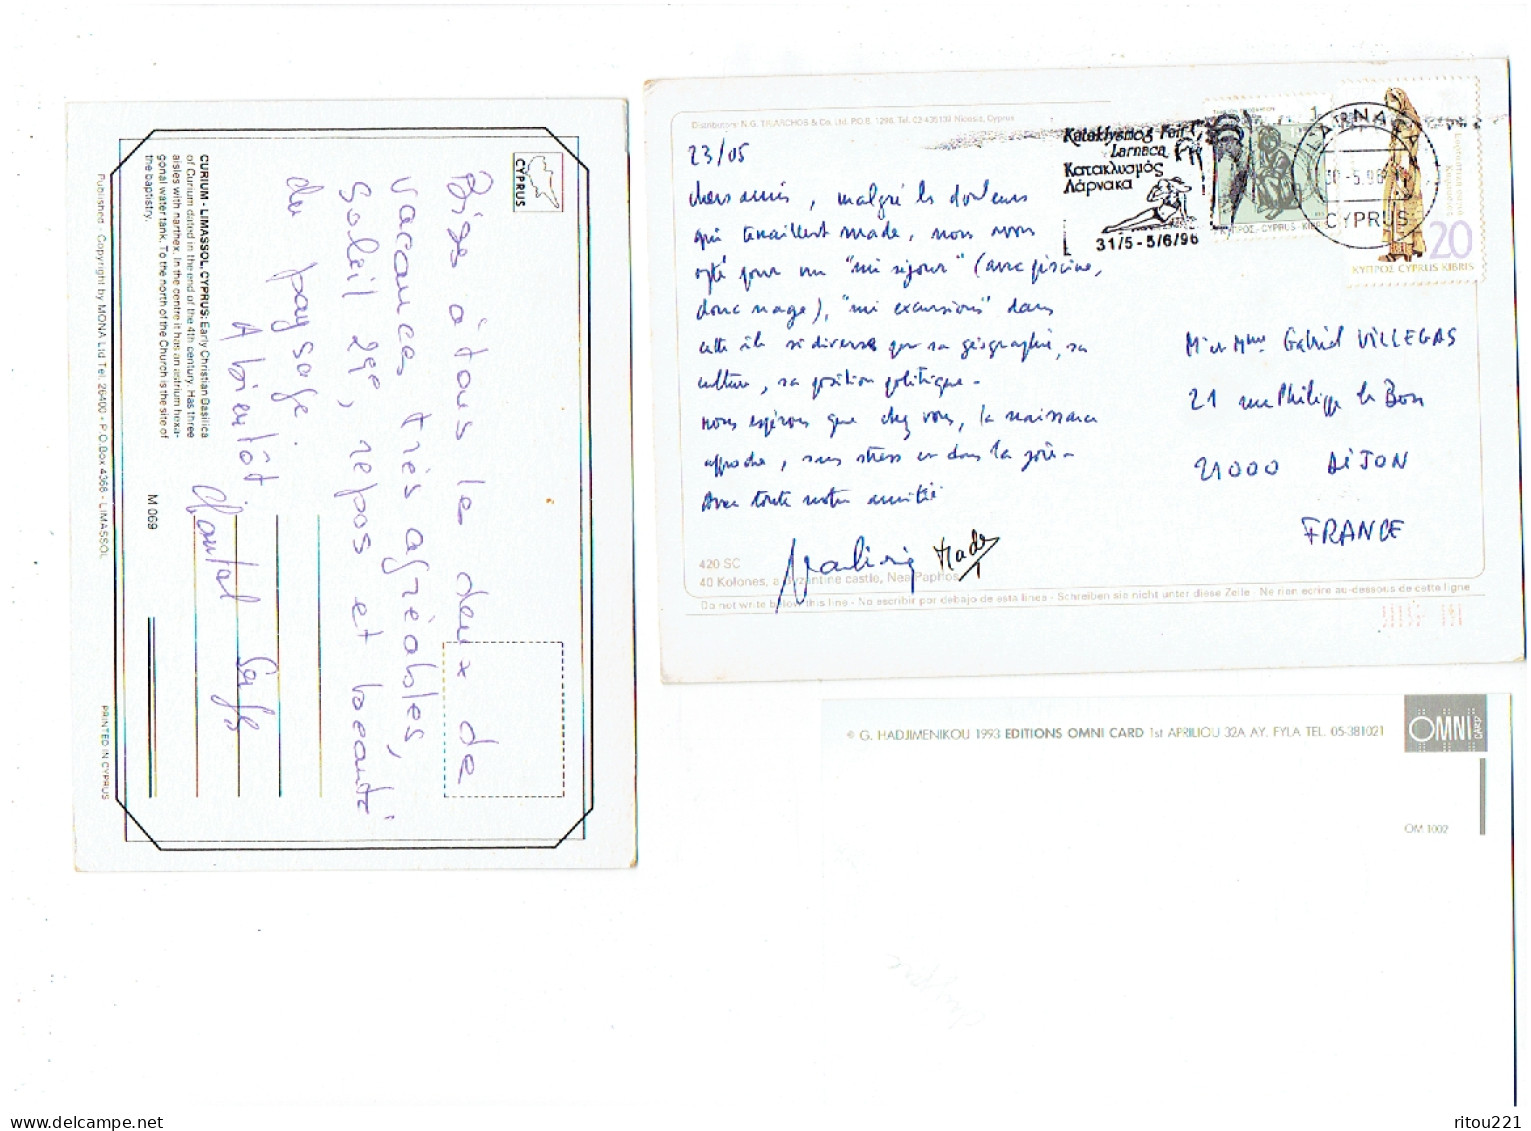 CYPRUS
CURIUM - LIMASSOL, CYPRUS: Early Christian Basilica
of Curium dated in the end of the 4th century. Has three
aisles with narthex. In the centre it has an atrium hexa-
gonal water tank. To the north of the Church is the site of
the baptistry.
M 069
Published - Copyright by MONA Ltd Tel. 26400 - P.O.Box 4366 - LIMASSOL
PRINTED IN CYPRUS
Bises à tous le deux de
vacances très agréables,
soleil, repos et beauté
du paysage.
A bientôt
Chantal
Distributors: N.G. TRIARCHOS & Co. Ltd. P.O.B. 1296. Tel. 02 Nicosia, Cyprus
Kataklysmos Fair
Larnaca
Κατακλυσμός
Λάρνακα
31/5 - 5/6/96
1
ΚΥΠΡΟΣ - CYPRUS - KIBRIS
LARNACA
-5.96
CYPRUS
20
ΚΥΠΡΟΣ CYPRUS KIBRIS
23/05
chers amis, malgré les douleurs
qui tenaillent made, nous avons
opté pour un "mi séjour" (avec piscine,
donc nage), "mi excursions" dans
cette île si diverse par sa géographie, sa
culture, sa position politique.
nous espérons que chez vous, la naissance
approche, sans stress et dans la joie.
Avec toute notre amitié
Made
Mr et Mme Gabriel VILLEGAS
21 rue Philippe le Bon
21000 DIJON
FRANCE
420 SC
40 Kolones, a byzantine castle, Nea Paphos
Do not write below this line - No escribir por debajo de esta linea - Schreiben sie nicht unter diese Zeile - Ne rien ecrire au-dessous de cette ligne
© G. HADJIMENIKOU 1993 EDITIONS OMNI CARD 1st APRILIOU 32A AY. FYLA TEL. 05-381021
OMNI CARD
OM 1002
delcampe.net
ritou221